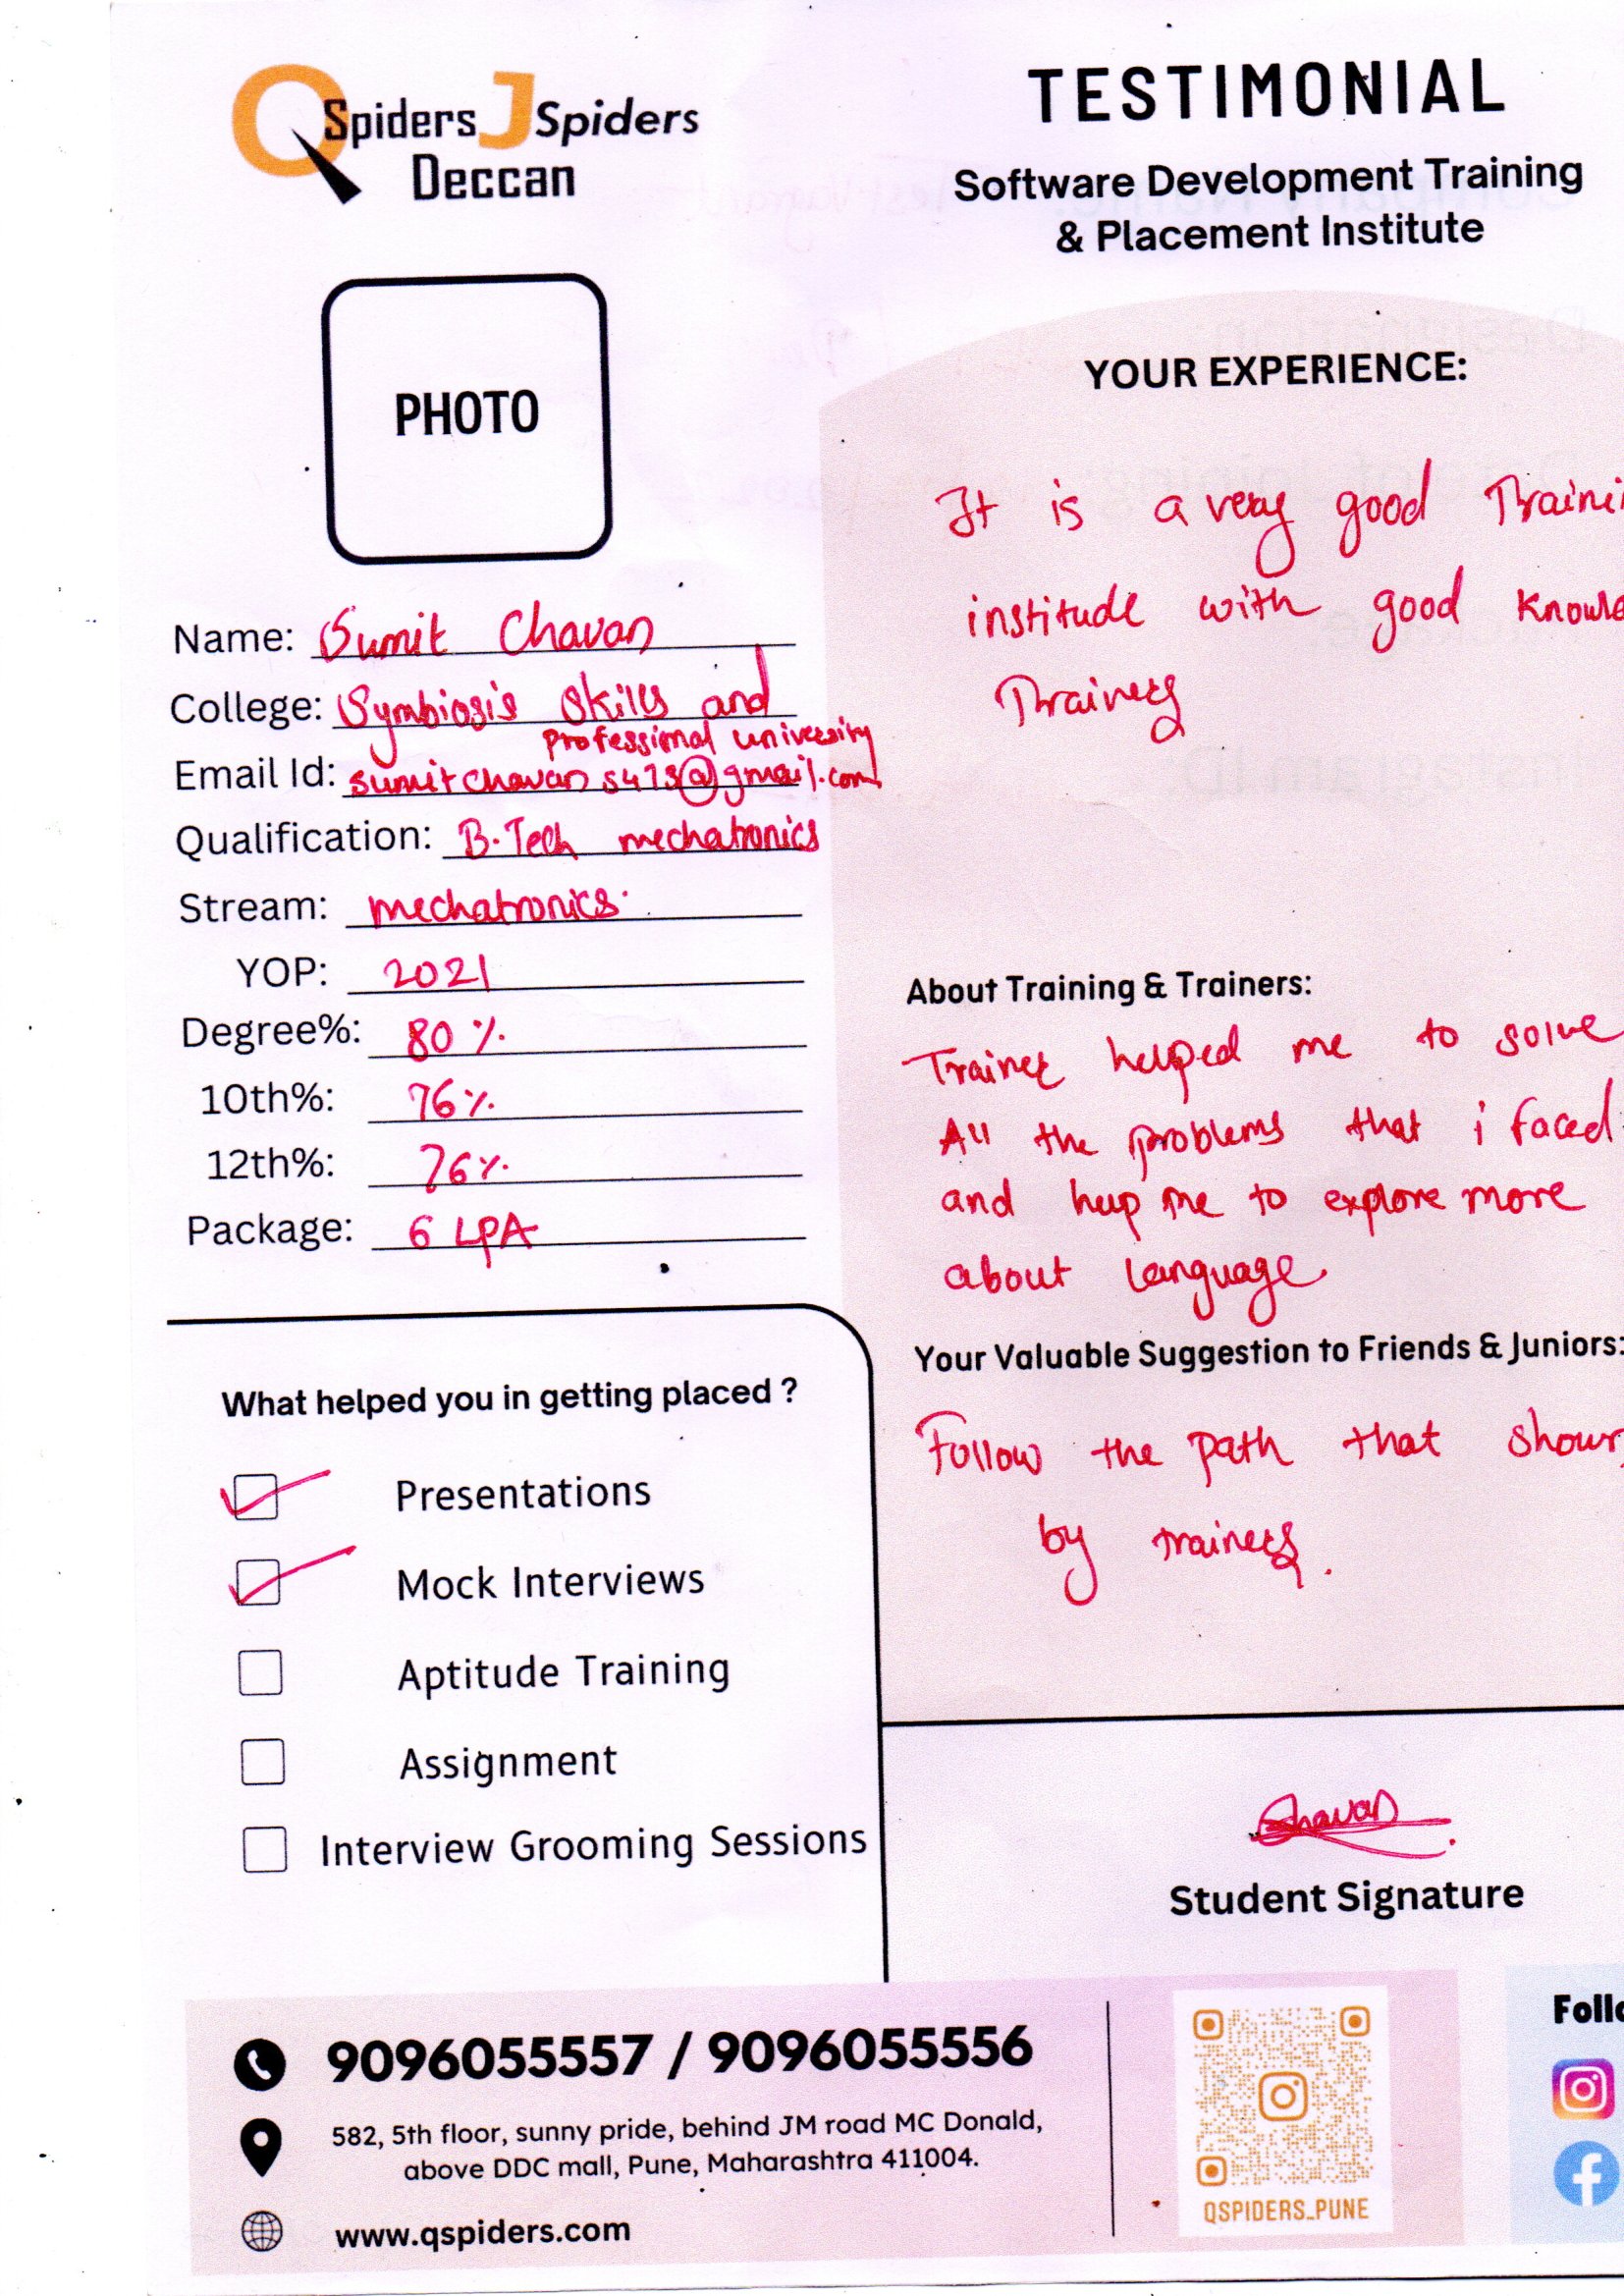 QSpiders JSpiders
Deccan
TESTIMONIAL
Software Development Training
& Placement Institute
PHOTO
Name: Sumit Chavan
College: Symbiosis Skills and
professional university
Email Id: sumitchavan5473@gmail.com
Qualification: B.Tech mechatronics
Stream: mechatronics.
YOP: 2021
Degree%: 80 %.
10th%: 76%.
12th%: 76%.
Package: 6 LPA
What helped you in getting placed ?
Presentations
Mock Interviews
Aptitude Training
Assignment
Interview Grooming Sessions
YOUR EXPERIENCE:
It is a very good Traini
institude with good knowle
Trainers
About Training & Trainers:
Trainer helped me to solve
All the problems that i faced
and help me to explore more
about language.
Your Valuable Suggestion to Friends & Juniors:
Follow the path that shows
by trainers.
Chavan
Student Signature
9096055557 / 9096055556
582, 5th floor, sunny pride, behind JM road MC Donald,
above DDC mall, Pune, Maharashtra 411004.
www.qspiders.com
QSPIDERS_PUNE
Follo